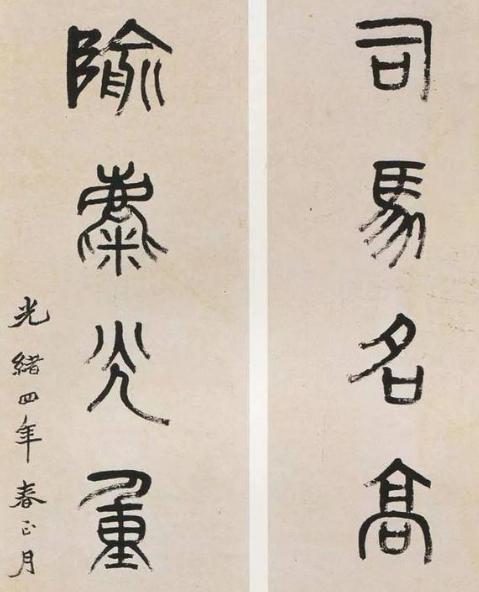 司馬名高
隃麋光重
光緒四年春正月